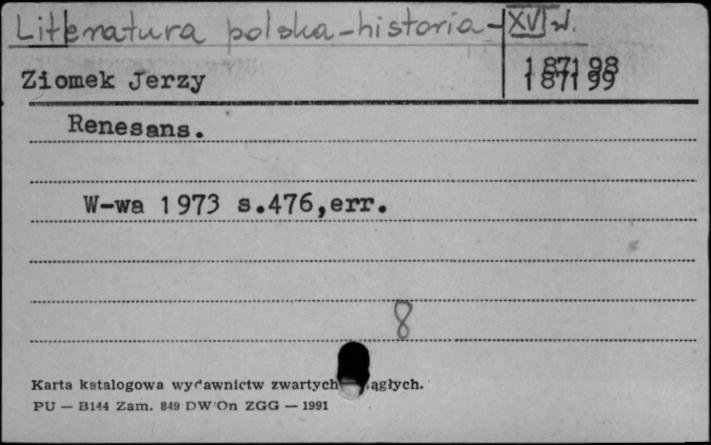 Literatura polska-historia-XVI w.
187198
Ziomek Jerzy
187199
Renesans.
W-wa 1973 s.476,err.
8
Karta katalogowa wydawnictw zwartych
PU — B144 Zam. 849 DW/On ZGG — 1991